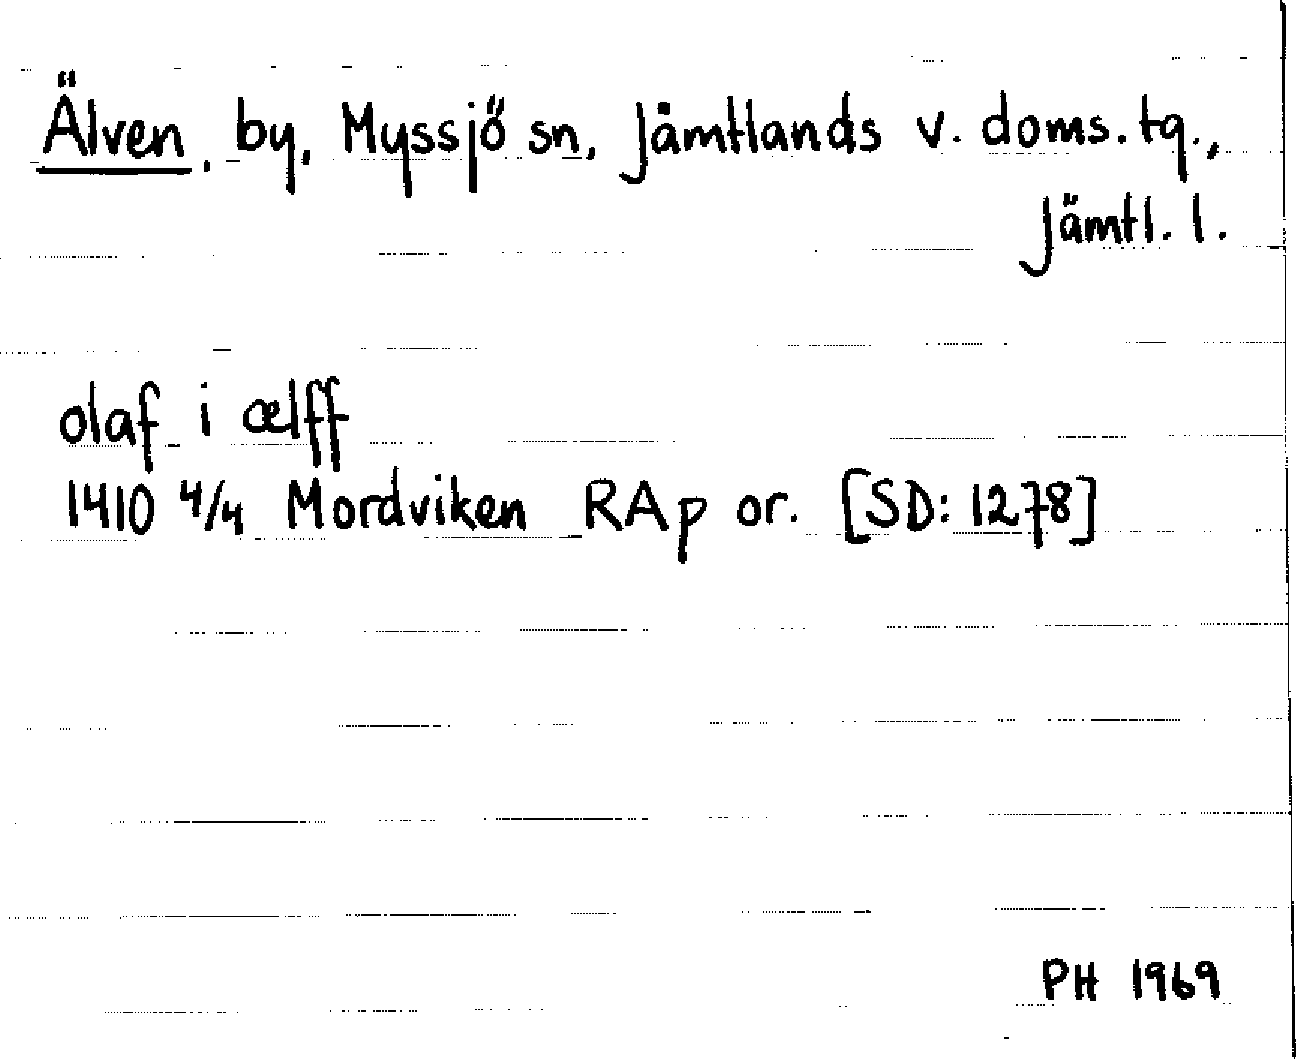 Älven, by, Myssjö sn, Jämtlands v. doms. tg.,
Jämtl. l.
olaf i ælff
1410 4/4 Mordviken RAp or. [SD: 1278]
PH 1969